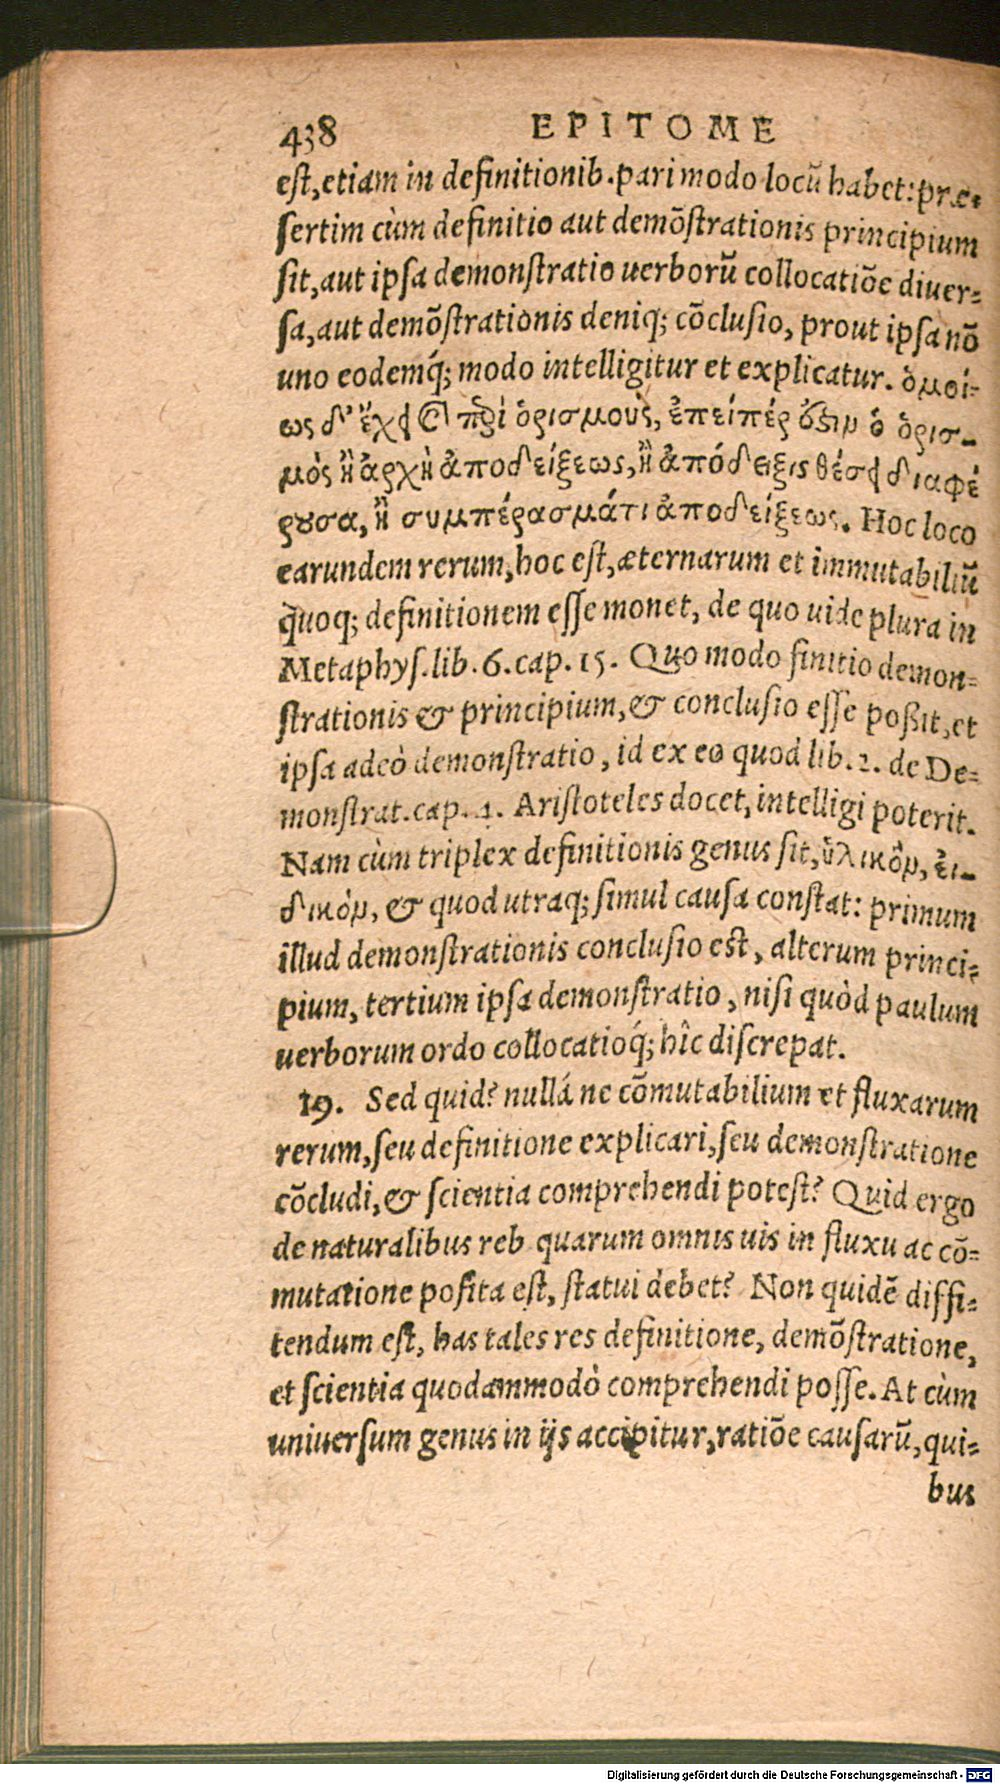 438 EPITOME
est, etiam in definitionib. pari modo locū habet: præ-
sertim cùm definitio aut demōstrationis principium
sit, aut ipsa demonstratio uerborū collocatiōe diuer-
sa, aut demōstrationis deniq; cōclusio, prout ipsa nō
uno eodemq́; modo intelligitur et explicatur. ὁμοί-
ως δ' ἔχει καὶ περὶ ὁρισμοὺς, ἐπείπερ ὅξιν ὁ ὁρισ-
μὸς ἢ ἀρχὴ ἀποδείξεως, ἢ ἀπόδειξις θέσει διαφέ
ρουσα, ἢ συμπέρασμάτι ἀποδείξεως. Hoc loco
earundem rerum, hoc est, æternarum et immutabiliū
quoq; definitionem esse monet, de quo uide plura in
Metaphys. lib. 6. cap. 15. Quo modo finitio demon-
strationis & principium, & conclusio esse poßit, et
ipsa adeò demonstratio, id ex eo quod lib. 2. de De-
monstrat. cap. 1. Aristoteles docet, intelligi poterit.
Nam cùm triplex definitionis genus sit, ὑλικὸν, εἰ-
δικὸν, & quod utraq; simul causa constat: primum
illud demonstrationis conclusio est, alterum princi-
pium, tertium ipsa demonstratio, nisi quòd paulum
uerborum ordo collocatioq́; hîc discrepat.
19. Sed quid? nullá ne cōmutabilium et fluxarum
rerum, seu definitione explicari, seu demonstratione
cōcludi, & scientia comprehendi potest? Quid ergo
de naturalibus reb. quarum omnis uis in fluxu ac cō-
mutatione posita est, statui debet? Non quidē diffi-
tendum est, has tales res definitione, demōstratione,
et scientia quodammodò comprehendi posse. At cùm
uniuersum genus in ijs accipitur, ratiōe causarū, qui-
bus
Digitalisierung gefördert durch die Deutsche Forschungsgemeinschaft - DFG